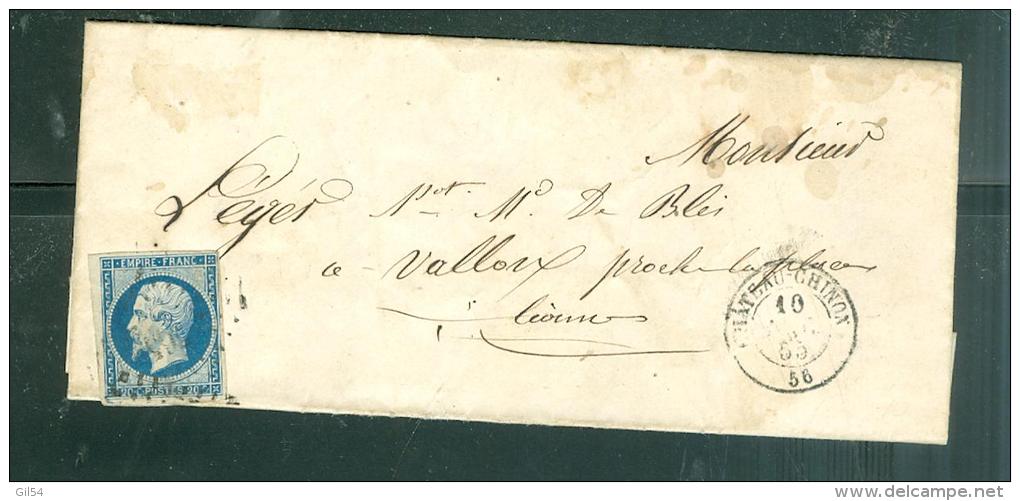 Monsieur
Léger Nt. Md De Blés
a Valloux proche
EMPIRE FRANC
20 C POSTES 20 C
CHATEAU-CHINON
10
55
56
Gil54
delcampe.net